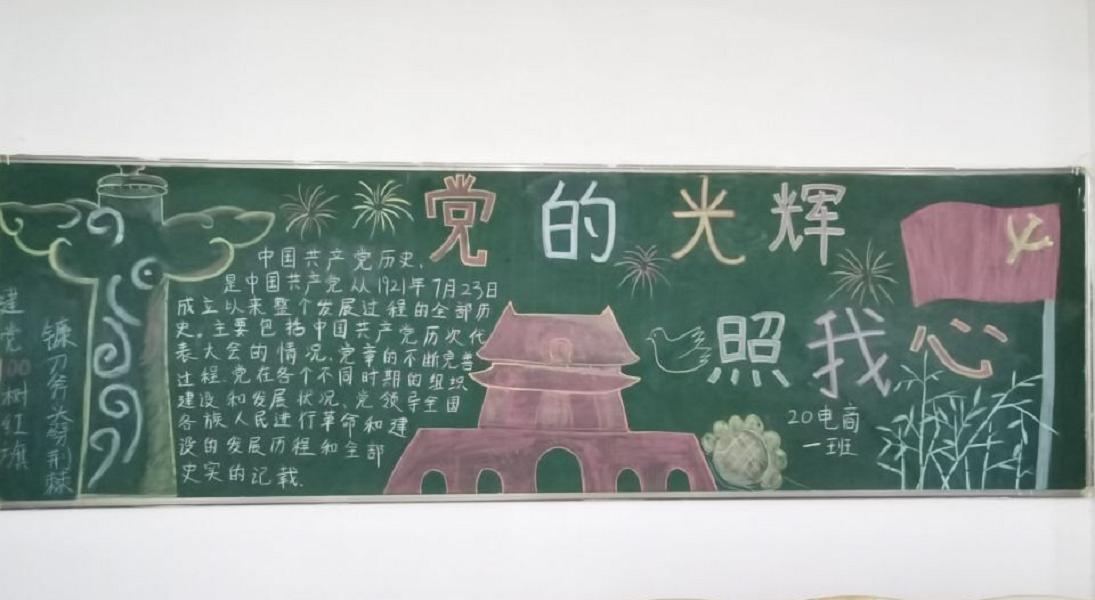 党的光辉
照我心
中国共产党历史.
是中国共产党从1921年7月23日
成立以来整个发展过程的全部历
史。主要包括中国共产党历次代
表大会的情况,党章的不断完善
过程,党在各个不同时期的组织
建设和发展状况、党领导全国
各族人民进行革命和建
设的发展历程和全部
史实的记载.
建党100树红旗
镰刀斧头劈荆棘
20电商
一班